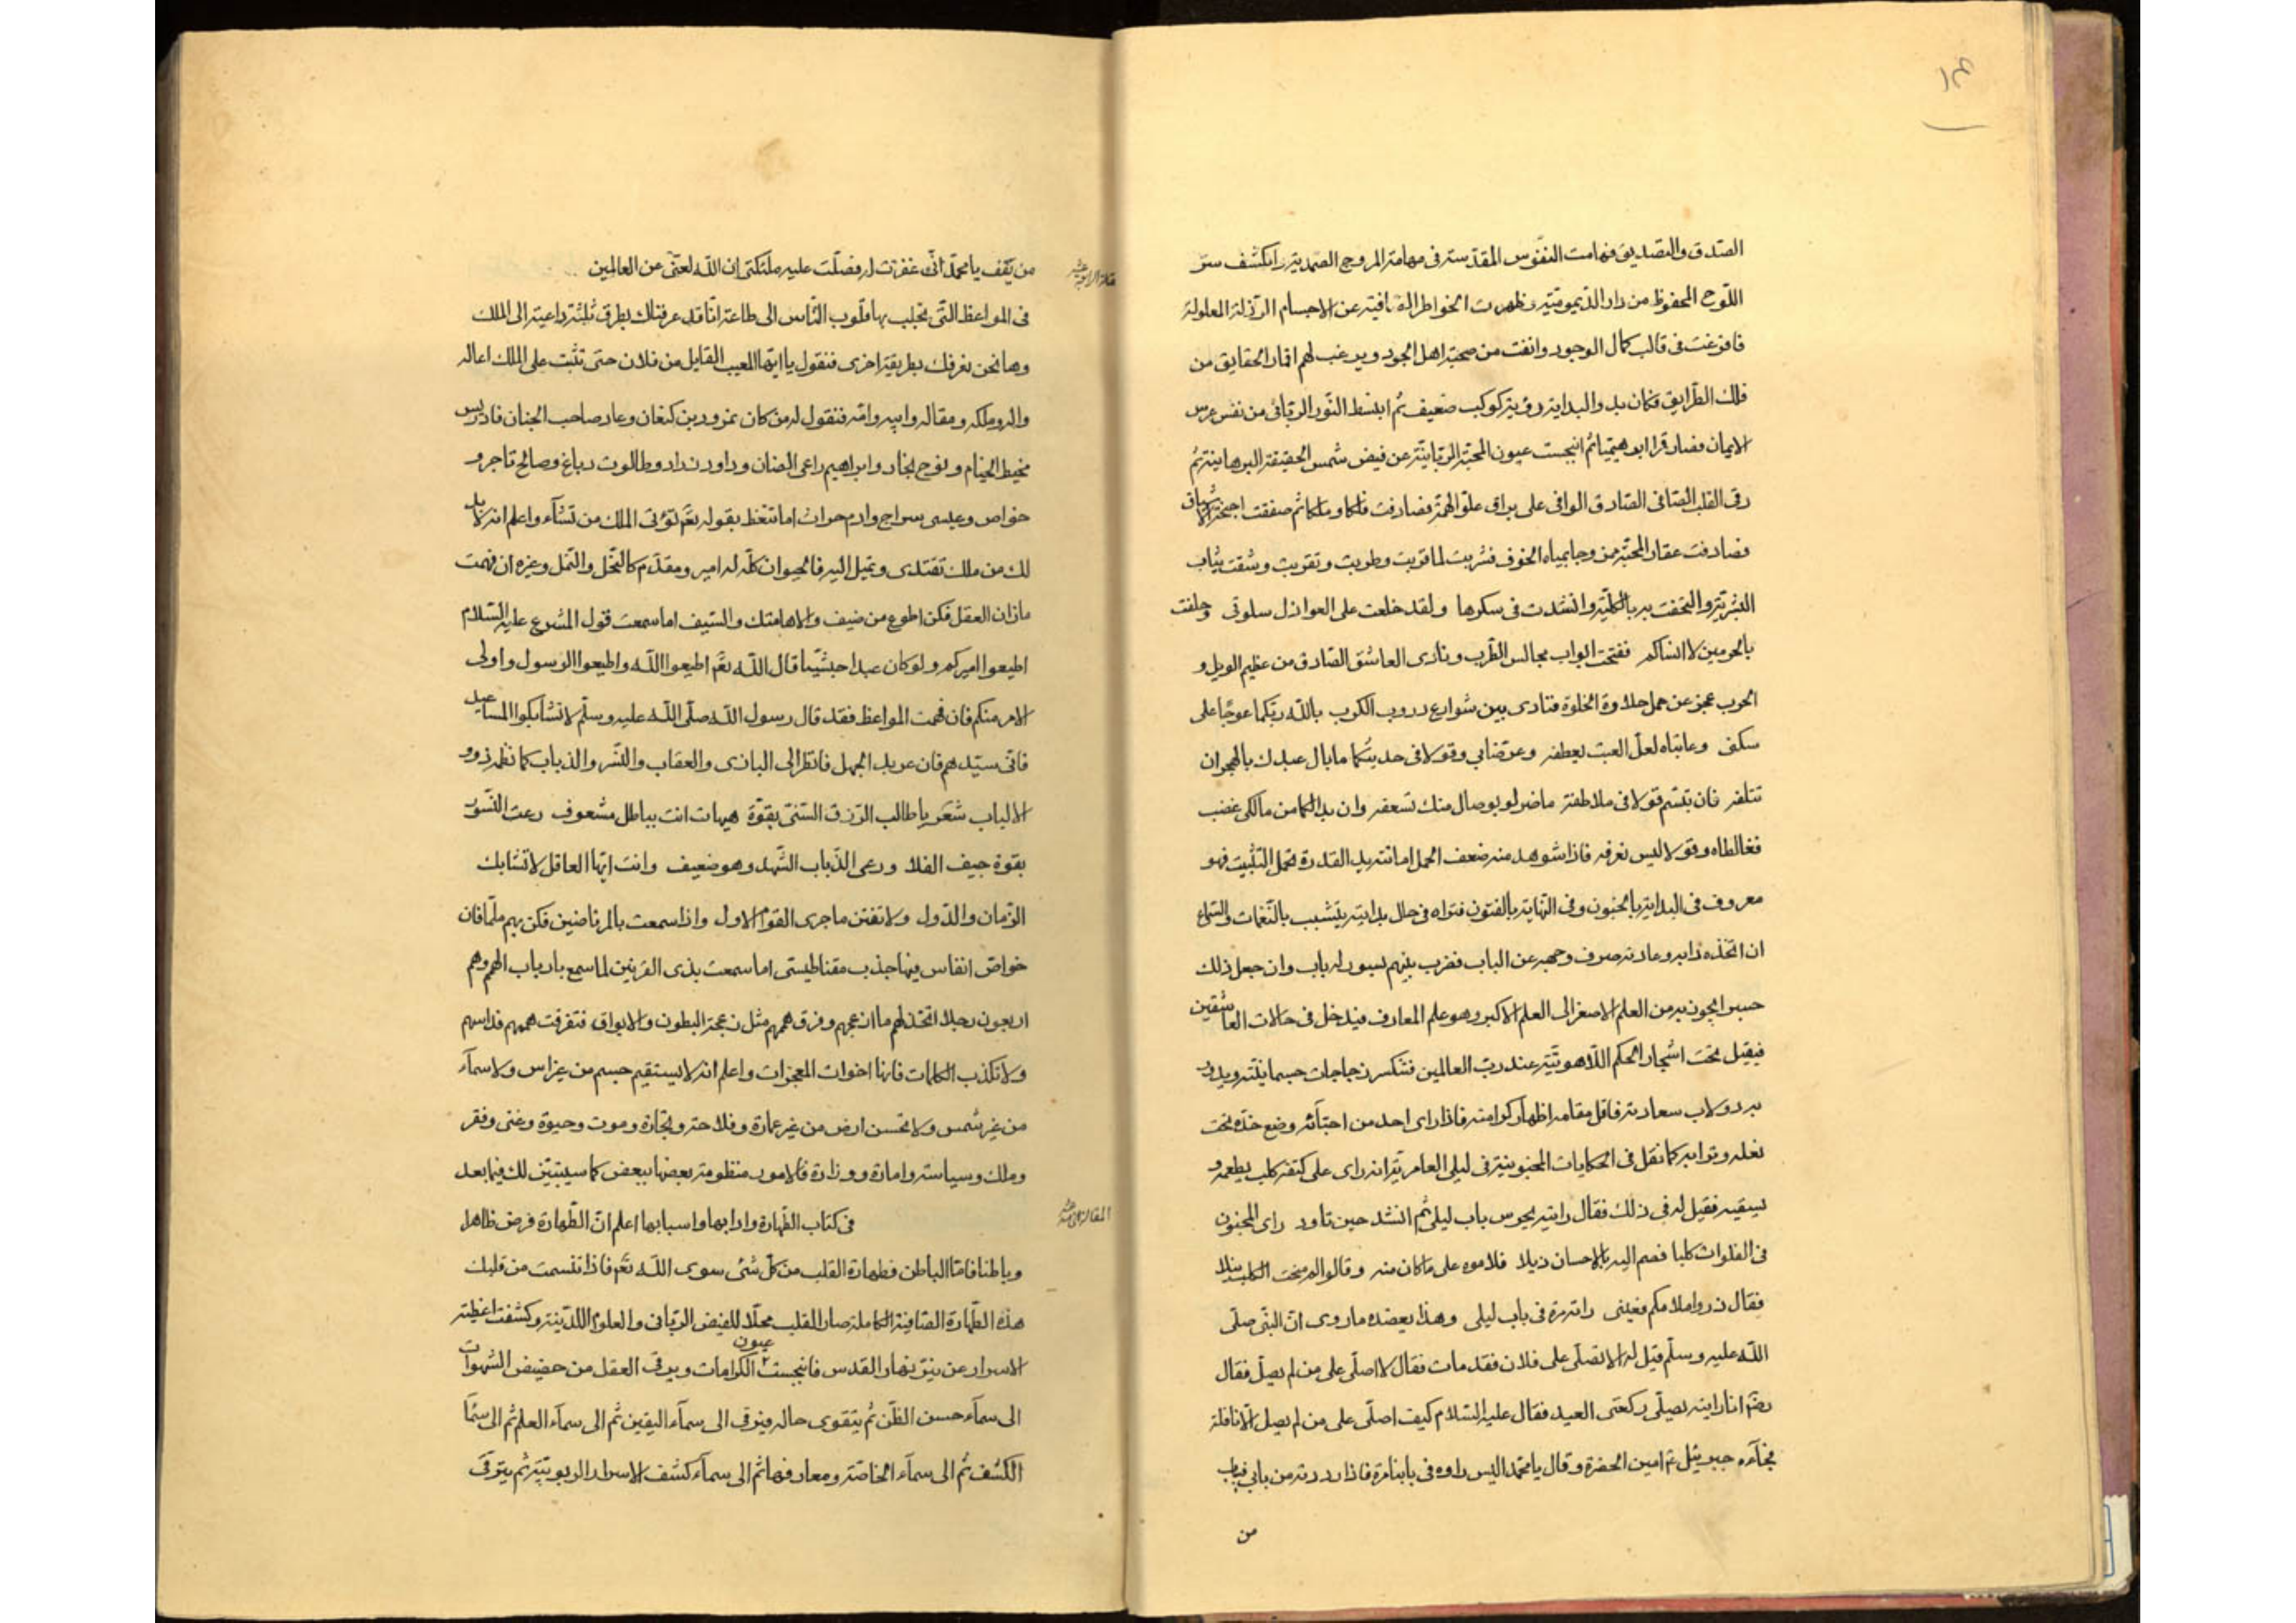 ١٤
الصدق والتصديق فهامت النفوس المقدسة في مهامة المروج الصمدية وانكشف ستر
اللوح المحفوظ من دار الديمومية وظهرت الخواطر الصافية عن الاجسام الرذلة المعلولة
فافرغت في قالب كمال الوجود وانفت من صحبة اهل الجود ويرغب لهم اقمار الحقايق من
فلك الطرايق فكان بدو البداية رؤية كوكب ضعيف ثم ابنسط النور الرباني من نفس عرس
الايمان فصار قمرا ابرهيميا ثم انبجست عيون المحبة الربانية عن فيض شمس الحقيقة البرهانية ثم
رقى القلب الصافى الصادق الوافى على براق علو الهمة فصادفت فلكا وملكا ثم صفقت اجنحة الاشواق
فصادفت عقار المحبة ممزوجا بمياه الخوف فشربت لما قربت وطربت وتقربت وشقت ثياب
البشرية والتحفت ببر بالكلية وانشدت في سكرها ولقد خلعت على العواذل سلوتى وحلفت
بالحرمين لا انساكم ففتحت ابواب مجالس الطرب ونادى العاشق الصادق من عظيم الويل و
الحرب عجز عن حمل حلاوة الخلوة فنادى بين شوارع دروب الكرب بالله ربكما عوجا على
سكنى وعاتباه لعل العتب يعطفه وعرضا بي وقولا في حديثكما ما بال عبدك بالهجران
تتلفه فان تبسم قولا في ملاطفة ما ضر لو بوصال منك تسعفه وان بدا لكما من مالكى غضب
فغالطاه وقولا ليس نعرفه فاذا شوهد منه ضعف الحمل امانته يد القدرة بحمل التثبيت فهو
معروف في البداية بالجنون وفى النهاية بالفتون فتراه في حال بدايته يتشبب بالنغمات والسماع
ان اتخذه دابه وعادته صرف وجهه عن الباب فضرب بينهم بسور له باب وان جعل ذلك
حبس الجون به من العلم الاصغر الى العلم الاكبر وهو علم المعارف فيدخل في حالات العاشقين
فيقيل تحت اشجار الحكم اللاهوتية عند رب العالمين فتكسر زجاجات جسمانيته ويدور
به دولاب سعادته فاقل مقامه اظهار كرامته فاذا راى احد من احبائه وضع خده تحت
نعله وترابه كما نقل في الحكايات المجنونية في ليلى العامرية انه راى على كتفه كلب يطعمه و
يسقيه فقيل له في ذلك فقال رايته يحرس باب ليلى ثم انشد حين تاود راى المجنون
في الفلوات كلبا فضم اليه بالاحسان ذيلا فلاموه على ما كان منه وقالوا لم منحت الكلب نيلا
فقال ذروا ملامكم فعينى راته مرة في باب ليلى وهذا يعضده ما روى ان النبي صلى
الله عليه وسلم قيل له الا تصلى على فلان فقد مات فقال لا اصلى على من لم يصل فقال
رضه انا رايته يصلى ركعتى العيد فقال عليه السلام كيف اصلى على من لم يصل الا نافلة
فجاءه جبرئيل عم امين الحضرة وقال يا محمد اليس راوه في بابنا مرة فاذا رددته من بابي فباب
من
المقالة الرابعة عشر
من يقف يا محمد انى غفرت له وفضلت عليه ملئكتى ان الله لغنى عن العالمين
في المواعظ التي تجلب بها قلوب الناس الى طاعة انا قد عرفناك بطرق ثلثة داعية الى الملك
وها نحن نعرفك بطريقة اخرى فنقول يا ايها المعيب القايل من فلان حتى تثبت على الملك اعاله
واله وملكه ومقاله وابيه وامه فنقول له من كان نمرود بن كنعان وعاد صاحب الجنان فادريس
مخيط الخيام ونوح نجار وابراهيم راعى الضان وداود زراد وطالوت دباغ وصالح تاجر و
خواص وعيسى سراج وادم حراث اما تتعظ بقوله تع تؤتى الملك من تشآء واعلم انه لا بد
لك من ملك تقتدى وتميل اليه فالحيوان كله له امير ومقدم كالنحل والنمل وغيره ان فهمت
مازان العقل فكن اطوع من ضيف والا هامتك والسيف اما سمعت قول المشرع عليه السلام
اطيعوا اميركم ولو كان عبدا حبشيا قال الله تع اطيعوا الله واطيعوا الرسول واولى
الامر منكم فان فهمت المواعظ فقد قال رسول الله صلى الله عليه وسلم لا تشابكوا المساعيد
فاتى سيدهم فان عربد الجهل فانظر الى البازى والعقاب والنسر والذباب كما نظم ذوو
الالباب شعر يا طالب الرزق السنى بقوة هيهات انت بباطل مشعوف رعت النسور
بقوة جيف الفلا ورعى الذباب الشهد وهو ضعيف وانت ايها العاقل لا تشابك
الزمان والدول ولا تفتن ما جرى القوم الاول واذا سمعت بالمرتاضين فكن بهم ملما فان
خواص انفاس فيها جذب مقناطيسى اما سمعت بذى القرنين لما سمع بارباب الهمم وهم
اربعون رجلا اتخذ لهم ما ازعجهم وفرق هممهم مثل زعجة البطون والابواق فتفرقت هممهم فداسهم
ولا تكذب الكلمات فانها اخوات المعجزات واعلم انه لا يستقيم جسم من غير راس ولا سمآء
من غير شمس ولا تحسن ارض من غير عمارة وفلاحة وتجارة وموت وحيوة وغنى وفقر
وملك وسياسة وامارة ووزارة فالامور منظومة بعضها ببعض كما سيتبين لك فيما بعد
المقالة الخامسة عشر
في كتاب الطهارة وادابها واسبابها اعلم ان الطهارة فرض ظاهرا
وباطنا فاما الباطن فطهارة القلب من كل شئ سوى الله تع فاذا تنسمت من قلبك
هذه الطهارة الصافية الكاملة صار القلب محلا للفيض الربانى والعلوم اللدنية وكشفت اغطية
الاسرار عن نيق نهار القدس فانبجست عيون الكرامات ويرقى العقل من حضيض الشهوات
الى سمآء حسن الظن ثم يتقوى حاله فيرقى الى سمآء اليقين ثم الى سمآء العلم ثم الى سمآ
الكشف ثم الى سمآء الخاصة ومعارفها ثم الى سمآء كشف الاسرار الربوبية ثم يترقى